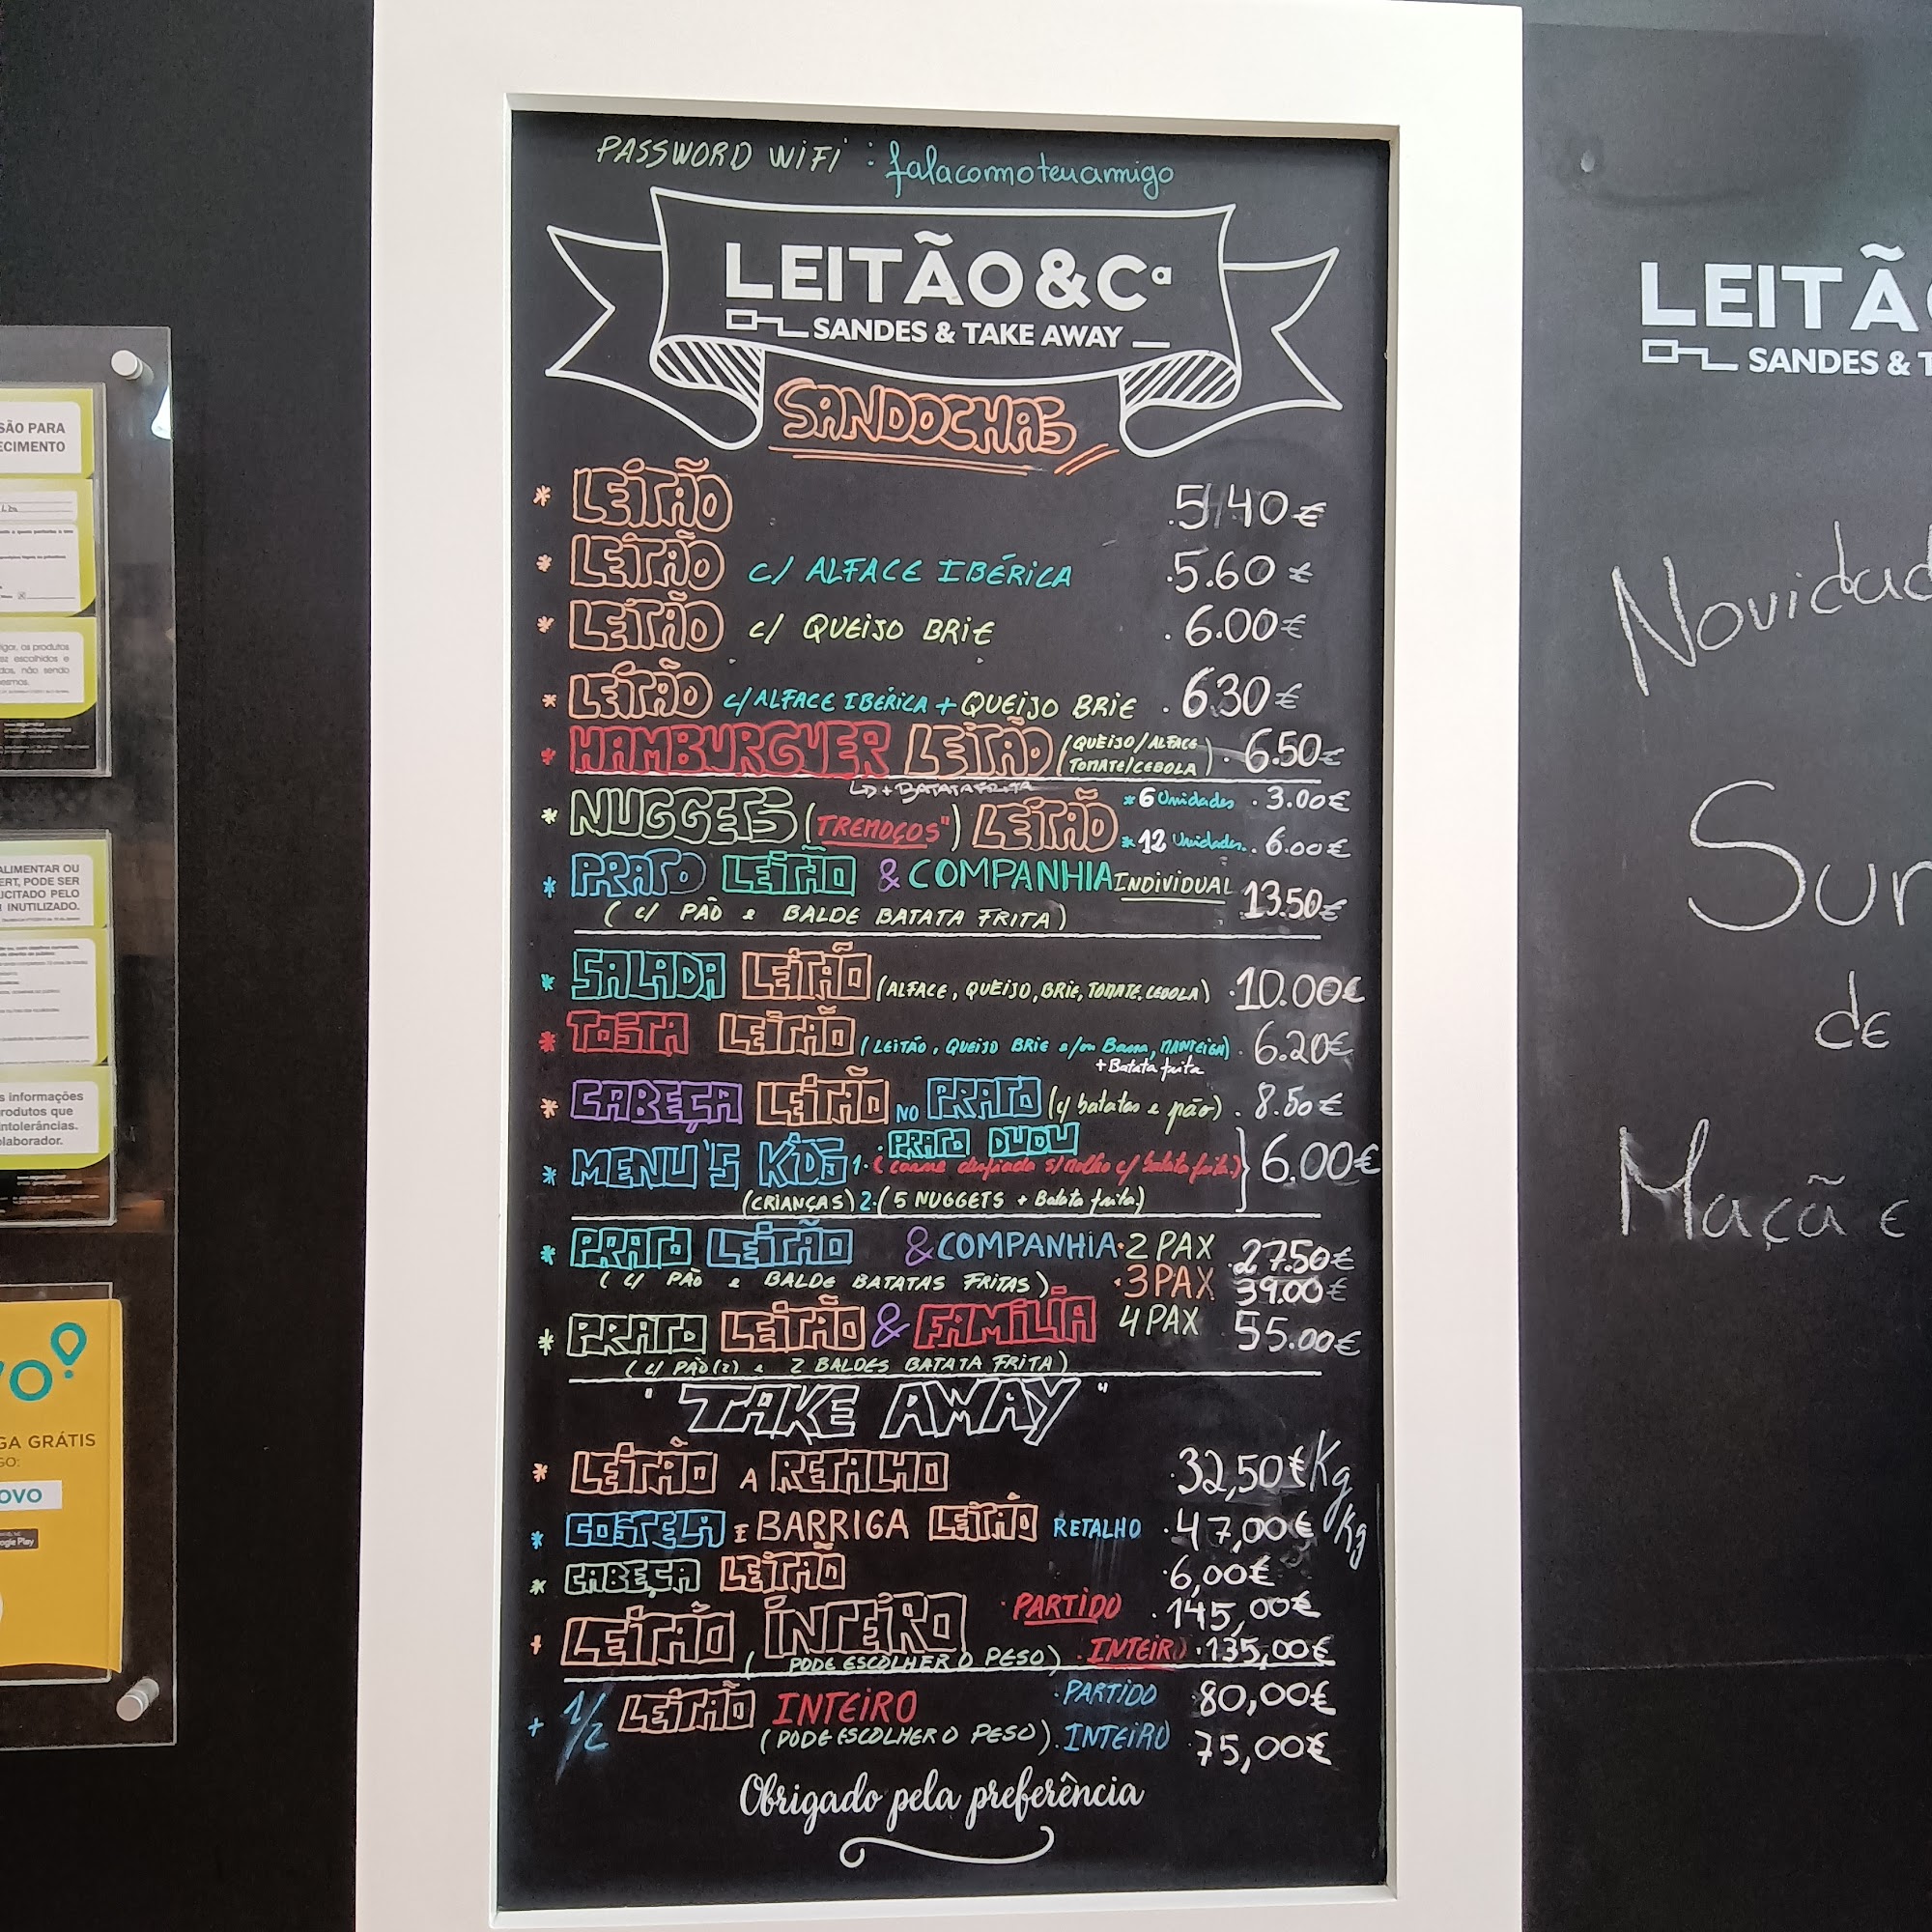 PASSWORD WiFi : falacomoteuamigo
LEITÃO&Cª
SANDES & TAKE AWAY
SANDOCHAS
* LEITÃO .5,40€
* LEITÃO c/ ALFACE IBÉRICA .5.60€
* LEITÃO c/ QUEIJO BRIE . 6.00€
* LEITÃO c/ALFACE IBÉRICA + QUEIJO BRIE . 6.30€
* HAMBURGUER LEITÃO (QUEIJO/ALFACE
TOMATE/CEBOLA) . 6.50€
+ BATATA FRITA
* NUGGETS (TREMOÇOS") LEITÃO * 6 Unidades . 3.00€
* 12 Unidades. . 6.00€
* PRATO LEITÃO & COMPANHIA INDIVIDUAL 13.50€
( c/ PÃO e BALDE BATATA FRITA )
* SALADA LEITÃO (ALFACE, QUEIJO, BRIE, TOMATE, CEBOLA) .10.00€
* TOSTA LEITÃO (LEITÃO, QUEIJO BRIE e/ou MANTEIGA) . 6.20€
+Batata frita
* CABEÇA LEITÃO NO PRATO (c/ batatas e pão) . 8.50€
* MENU'S KIDS 1. PRATO DUDU
(carne desfiada s/molho c/ batata frita.) 6.00€
(CRIANÇAS) 2.(5 NUGGETS + Batata frita.)
* PRATO LEITÃO & COMPANHIA . 2 PAX .27.50€
( c/ PÃO e BALDE BATATAS FRITAS ) . 3 PAX 39.00€
* PRATO LEITÃO & FAMÍLIA 4 PAX 55.00€
( c/ PÃO (2) e 2 BALDES BATATA FRITA )
" TAKE AWAY "
* LEITÃO A RETALHO .32,50€ Kg
* COSTELA E BARRIGA LEITÃO RETALHO .47,00€ Kg
* CABEÇA LEITÃO .6,00€
+ LEITÃO INTEIRO . PARTIDO . 145,00€
( PODE ESCOLHER O PESO ) . INTEIRO . 135,00€
+ 1/2 LEITÃO INTEIRO . PARTIDO 80,00€
( PODE ESCOLHER O PESO ) . INTEIRO .75,00€
Obrigado pela preferência
LEITÃ
SANDES & T
Novidad
Sur
de
Maçã e
SÃO PARA
ECIMENTO
igor, os produtos
ez escolhidos e
dos, não sendo
esmos.
ALIMENTAR OU
ERT, PODE SER
ICITADO PELO
INUTILIZADO.
s informações
rodutos que
ntolerâncias.
olaborador.
VO
GA GRÁTIS
GO:
OVO
ogle Play